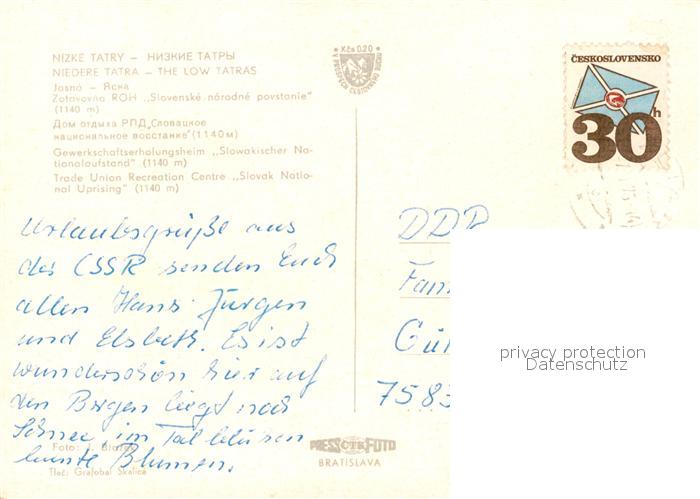 NÍZKE TATRY – НИЗКИЕ ТАТРЫ
NIEDERE TATRA – THE LOW TATRAS
Jasná – Ясна
Zotavovňa ROH „Slovenské národné povstanie"
(1140 m)
Дом отдыха РПД „Словацкое
национальное восстание" (1140 м)
Gewerkschaftserholungsheim „Slowakischer Na-
tionalaufstand" (1140 m)
Trade Union Recreation Centre „Slovak Natio-
nal Uprising" (1140 m)
Kčs 0,20
ČESKOSLOVENSKO
30h
Urlaubsgrüße aus
der CSSR senden Euch
allen Hans-Jürgen
und Elsbeth. Es ist
wunderschön hier auf
den Bergen liegt noch
Schnee, im Tal blühen
bunte Blumen.
DDR
Fam
Gü
7583
privacy protection
Datenschutz
Foto:
Tlač: Grafobal Skalica
PRESS ČTK FOTO
BRATISLAVA